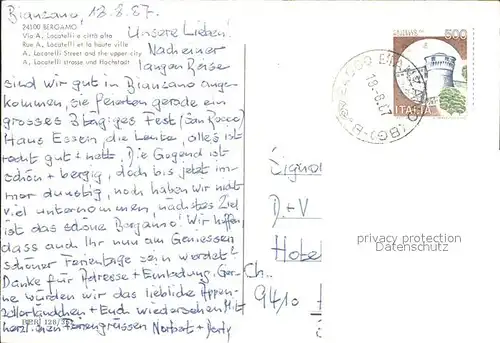 Bianzano, 18.8.87.
24100 BERGAMO
Via A. Locatelli e città alta
Rue A. Locatelli et la haute ville
A. Locatelli Street and the upper city
A. Locatelli strasse und Hochstadt
Unsere Lieben!
Nach einer
langen Reise
sind wir gut in Bianzano ange-
kommen, sie feierten gerade ein
grosses 3 tägiges Fest (San Rocco)
Haus Essen, die Leute, alles ist
recht gut + nett. Die Gegend ist
schön + bergig, doch bis jetzt im-
mer dunstig, noch haben wir nicht
viel unternommen, nächstes Ziel
ist das schöne Bergamo! Wir hoffen,
dass auch Ihr nun am Geniessen
schöner Ferientage sein werdet?
Danke für Adresse + Einladung. Ger-
ne würden wir das liebliche Appen-
zellerländchen + Euch wiedersehen. Mit
herzlichen Feriengrüssen Norbert +
500
ITALIA
18-8-87
D. + V
Hote
Ch..
9410
privacy protection
Datenschutz